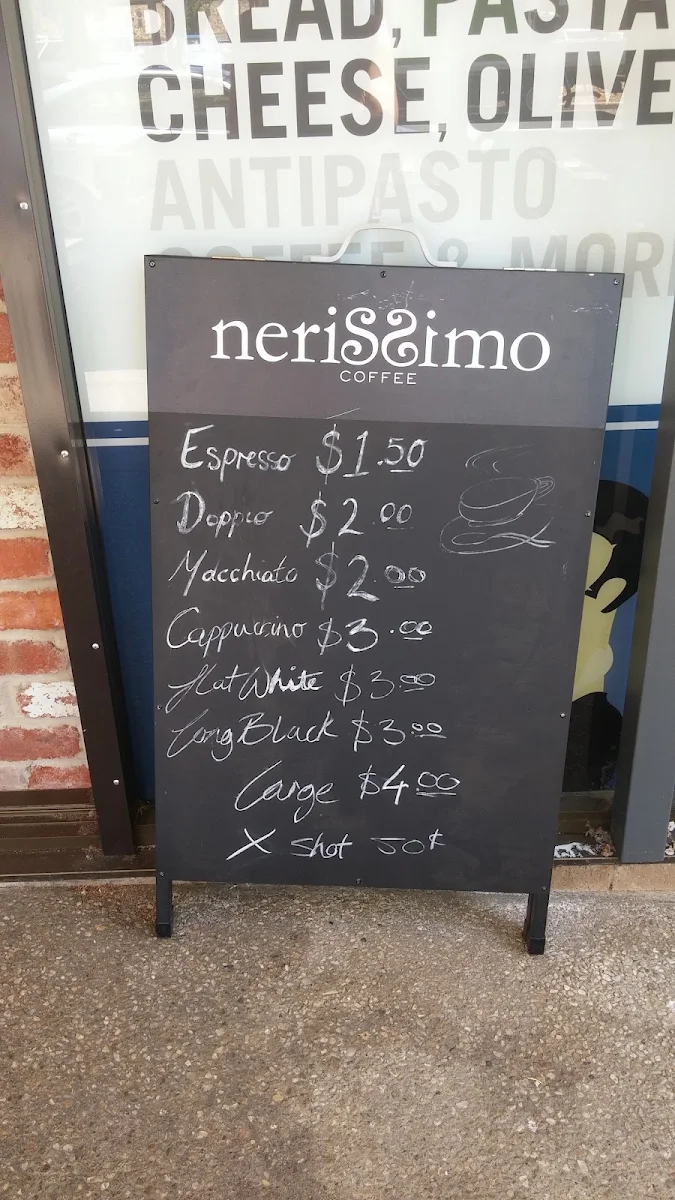 BREAD, PASTA
CHEESE, OLIVE
ANTIPASTO
COFFEE & MORE
neriSSimo
COFFEE
Espresso $1.50
Doppio $2.00
Macchiato $2.00
Cappuccino $3.00
Flat White $3.00
Long Black $3.00
Large $4.00
X Shot 50¢